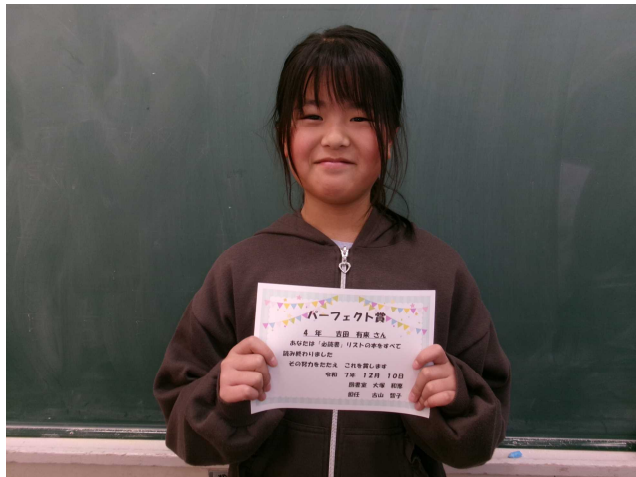 パーフェクト賞
4年 吉田 有来 さん
あなたは「必読書」リストの本をすべて
読み終わりました
その努力をたたえ これを賞します
令和 7年 12月 10日
図書室 大塚 和恵
担任 古山 智子